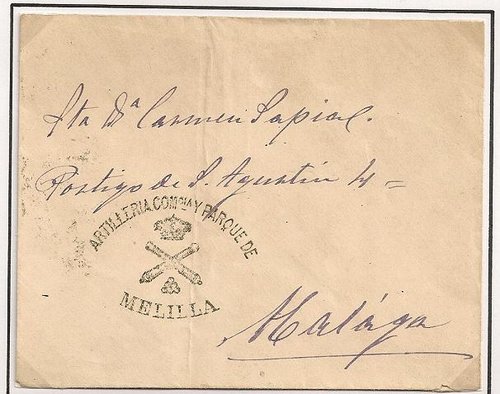 Sta Dª Carmen Sapial.
Postigo de S. Agustín 4=
ARTILLERIA COMPIA Y PARQUE DE
MELILLA
Malága